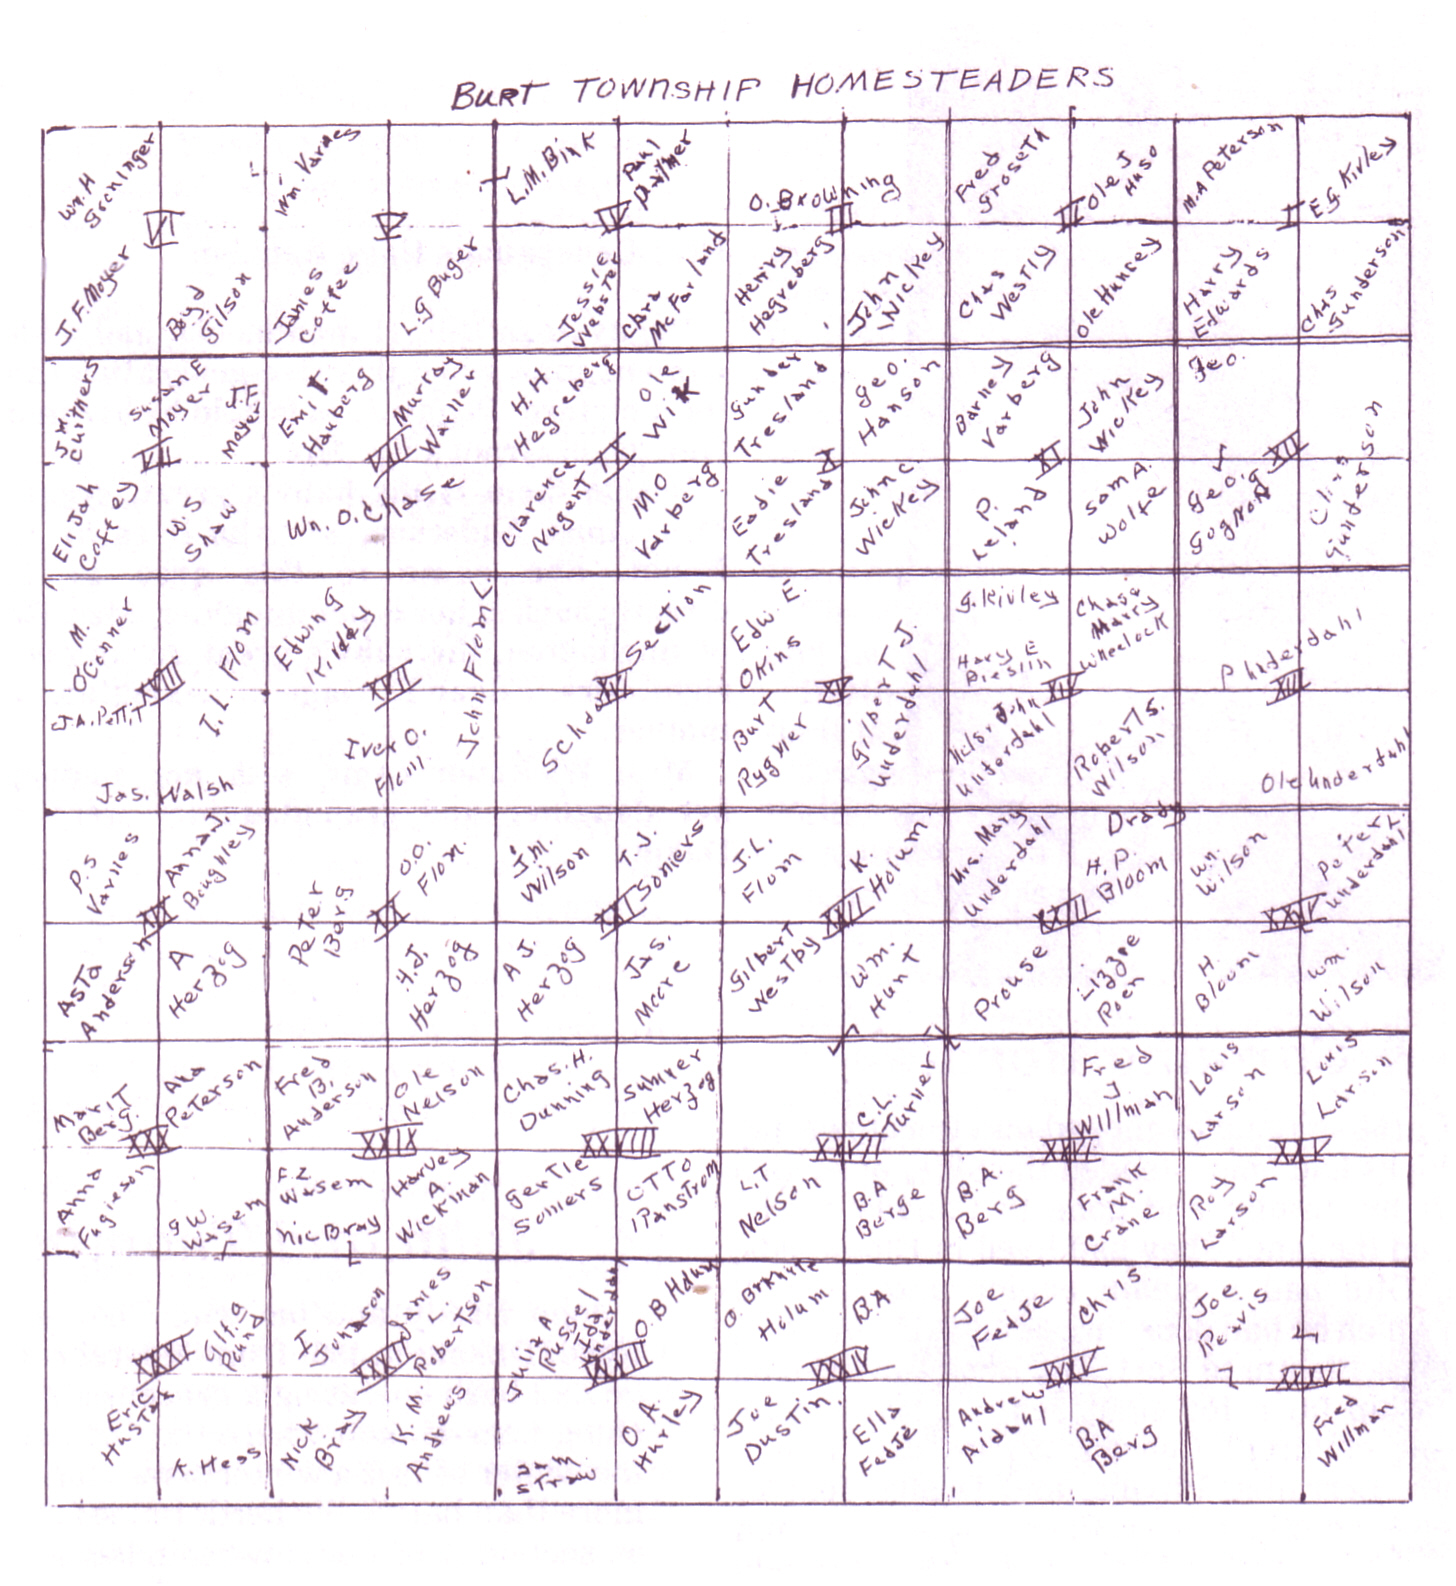 BURT TOWNSHIP HOMESTEADERS
Wm. H
Greninger
VI
J.F. Moyer
Boyd
Gilson
Wm. Varnes
V
James
Coffee
L.G Buger
L.M. Bink
Paul
Palmer
IV
Jessie
Webster
Clara
McFarland
O. Browning
III
Henry
Hegreberg
John
Wickey
Fred
Groseth
Ole J
Huso
II
Chas
Westly
Ole Huncey
M.A Peterson
E.G. Kivley
I
Harry
Edwards
Chas
Gunderson
Jim
Chilmers
Susan E
Moyer
J.F.
Moyer
VII
Elijah
Coffey
W.S
Shaw
Emil T.
Hauberg
Murray
Warner
VIII
Wm. O. Chase
H.H.
Hegreberg
Ole
Wik
IX
Clarence
Nugent
M.O
Varberg
Gunder
Tresland
Geo.
Hanson
X
Eadie
Tresland
John C
Wickey
Barney
Varberg
John
Wickey
XI
P.
Leland
Som A.
Wolfe
Geo.
XII
Geo. G
Gognon
Olin
Gunderson
M.
OConner
XVIII
J.A. Pettit
I. L. Flom
Jas. Walsh
Edwin G
Kiddy
XVII
Iver O.
Flom
John Flom L.
School Section
XVI
Edw E.
Okins
XV
Burt
Rygner
Gilbert J.
Underdahl
G. Kivley
Hary E
Preslin
Chase
Marry
Wheelock
XIV
Nils. John
Underdahl
Robert S.
Wilson
P Underdahl
XIII
Ole Underdahl
P.S
Varnes
Anna J.
Boughley
XIX
Asta
Anderson
A
Herzog
Peter
Berg
O.O.
Flom.
XX
H.J.
Herzog
J.M.
Wilson
T.J.
Somers
XXI
A J.
Herzog
Jas.
Moore
J.L.
Flom
K.
Holum.
XXII
Gilbert
Westby
Wm.
Hunt
Mrs. Mary
Underdahl
Drady
H.P.
Bloom
XXIII
Prouse
Lizzie
Poen
Wn.
Wilson
Peter L.
Underdahl
XXIV
H.
Bloom
Wm.
Wilson
Marit
Berg.
Ana
Peterson
XXX
Anna
Fugieson
G.W.
Wasem
Fred
B.
Anderson
Ole
Nelson
XXIX
F.Z
Wasem
Nic Bray
Harvey
A.
Wickman
Chas. H.
Dunning
Sumner
Herzog
XXVIII
Gertie
Somers
Otto
Panstrom
C.L.
Turner
XXVII
L.T
Nelson
B.A
Berge
Fred
J
Willman
XXVI
B.A.
Berg
Frank
M.
Crane
Louis
Larson
Louis
Larson
XXV
Roy
Larson
Gilt. A
Pound
XXXI
Eric
Hustad
K. Hess
I.
Johnson
James
L.
Robertson
XXXII
Nick
Bray
K.M.
Andrews
Julia A
Russel
Ida
Underdahl
O.B Holum
XXXIII
Sam
Straw
O.A.
Hurley
O. Bernice
Holum
B.A
XXXIV
Joe
Dustin.
Ella
Fedje
Joe
Fedje
Chris
XXXV
Andrew
Aidahl
B.A
Berg
Joe.
Reavis
XXXVI
Fred
Willman